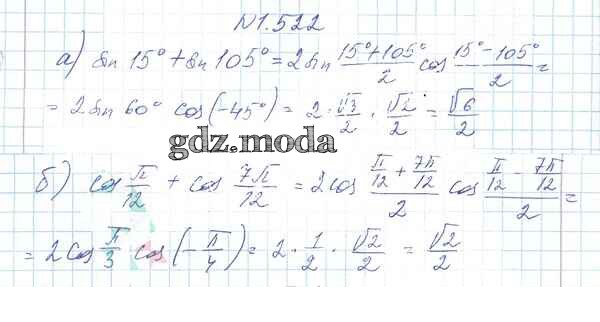 №1.522
а) sin 15° + sin 105° = 2 sin (15°+105°)/2 cos (15°-105°)/2 =
= 2 sin 60° cos(-45°) = 2 · √3/2 · √2/2 = √6/2
gdz.moda
б) cos π/12 + cos 7π/12 = 2cos (π/12 + 7π/12)/2 cos (π/12 - 7π/12)/2 =
= 2 cos π/3 cos(-π/4) = 2 · 1/2 · √2/2 = √2/2